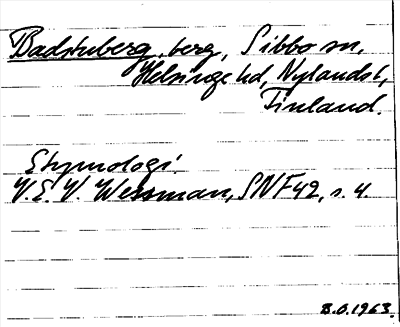 Badstuberg, berg, Sibbo sn,
Helsinge hd, Nylands l,
Finland.
Etymologi.
V.E.V. Wessman, SNF 42, s. 4.
B.O. 1963.